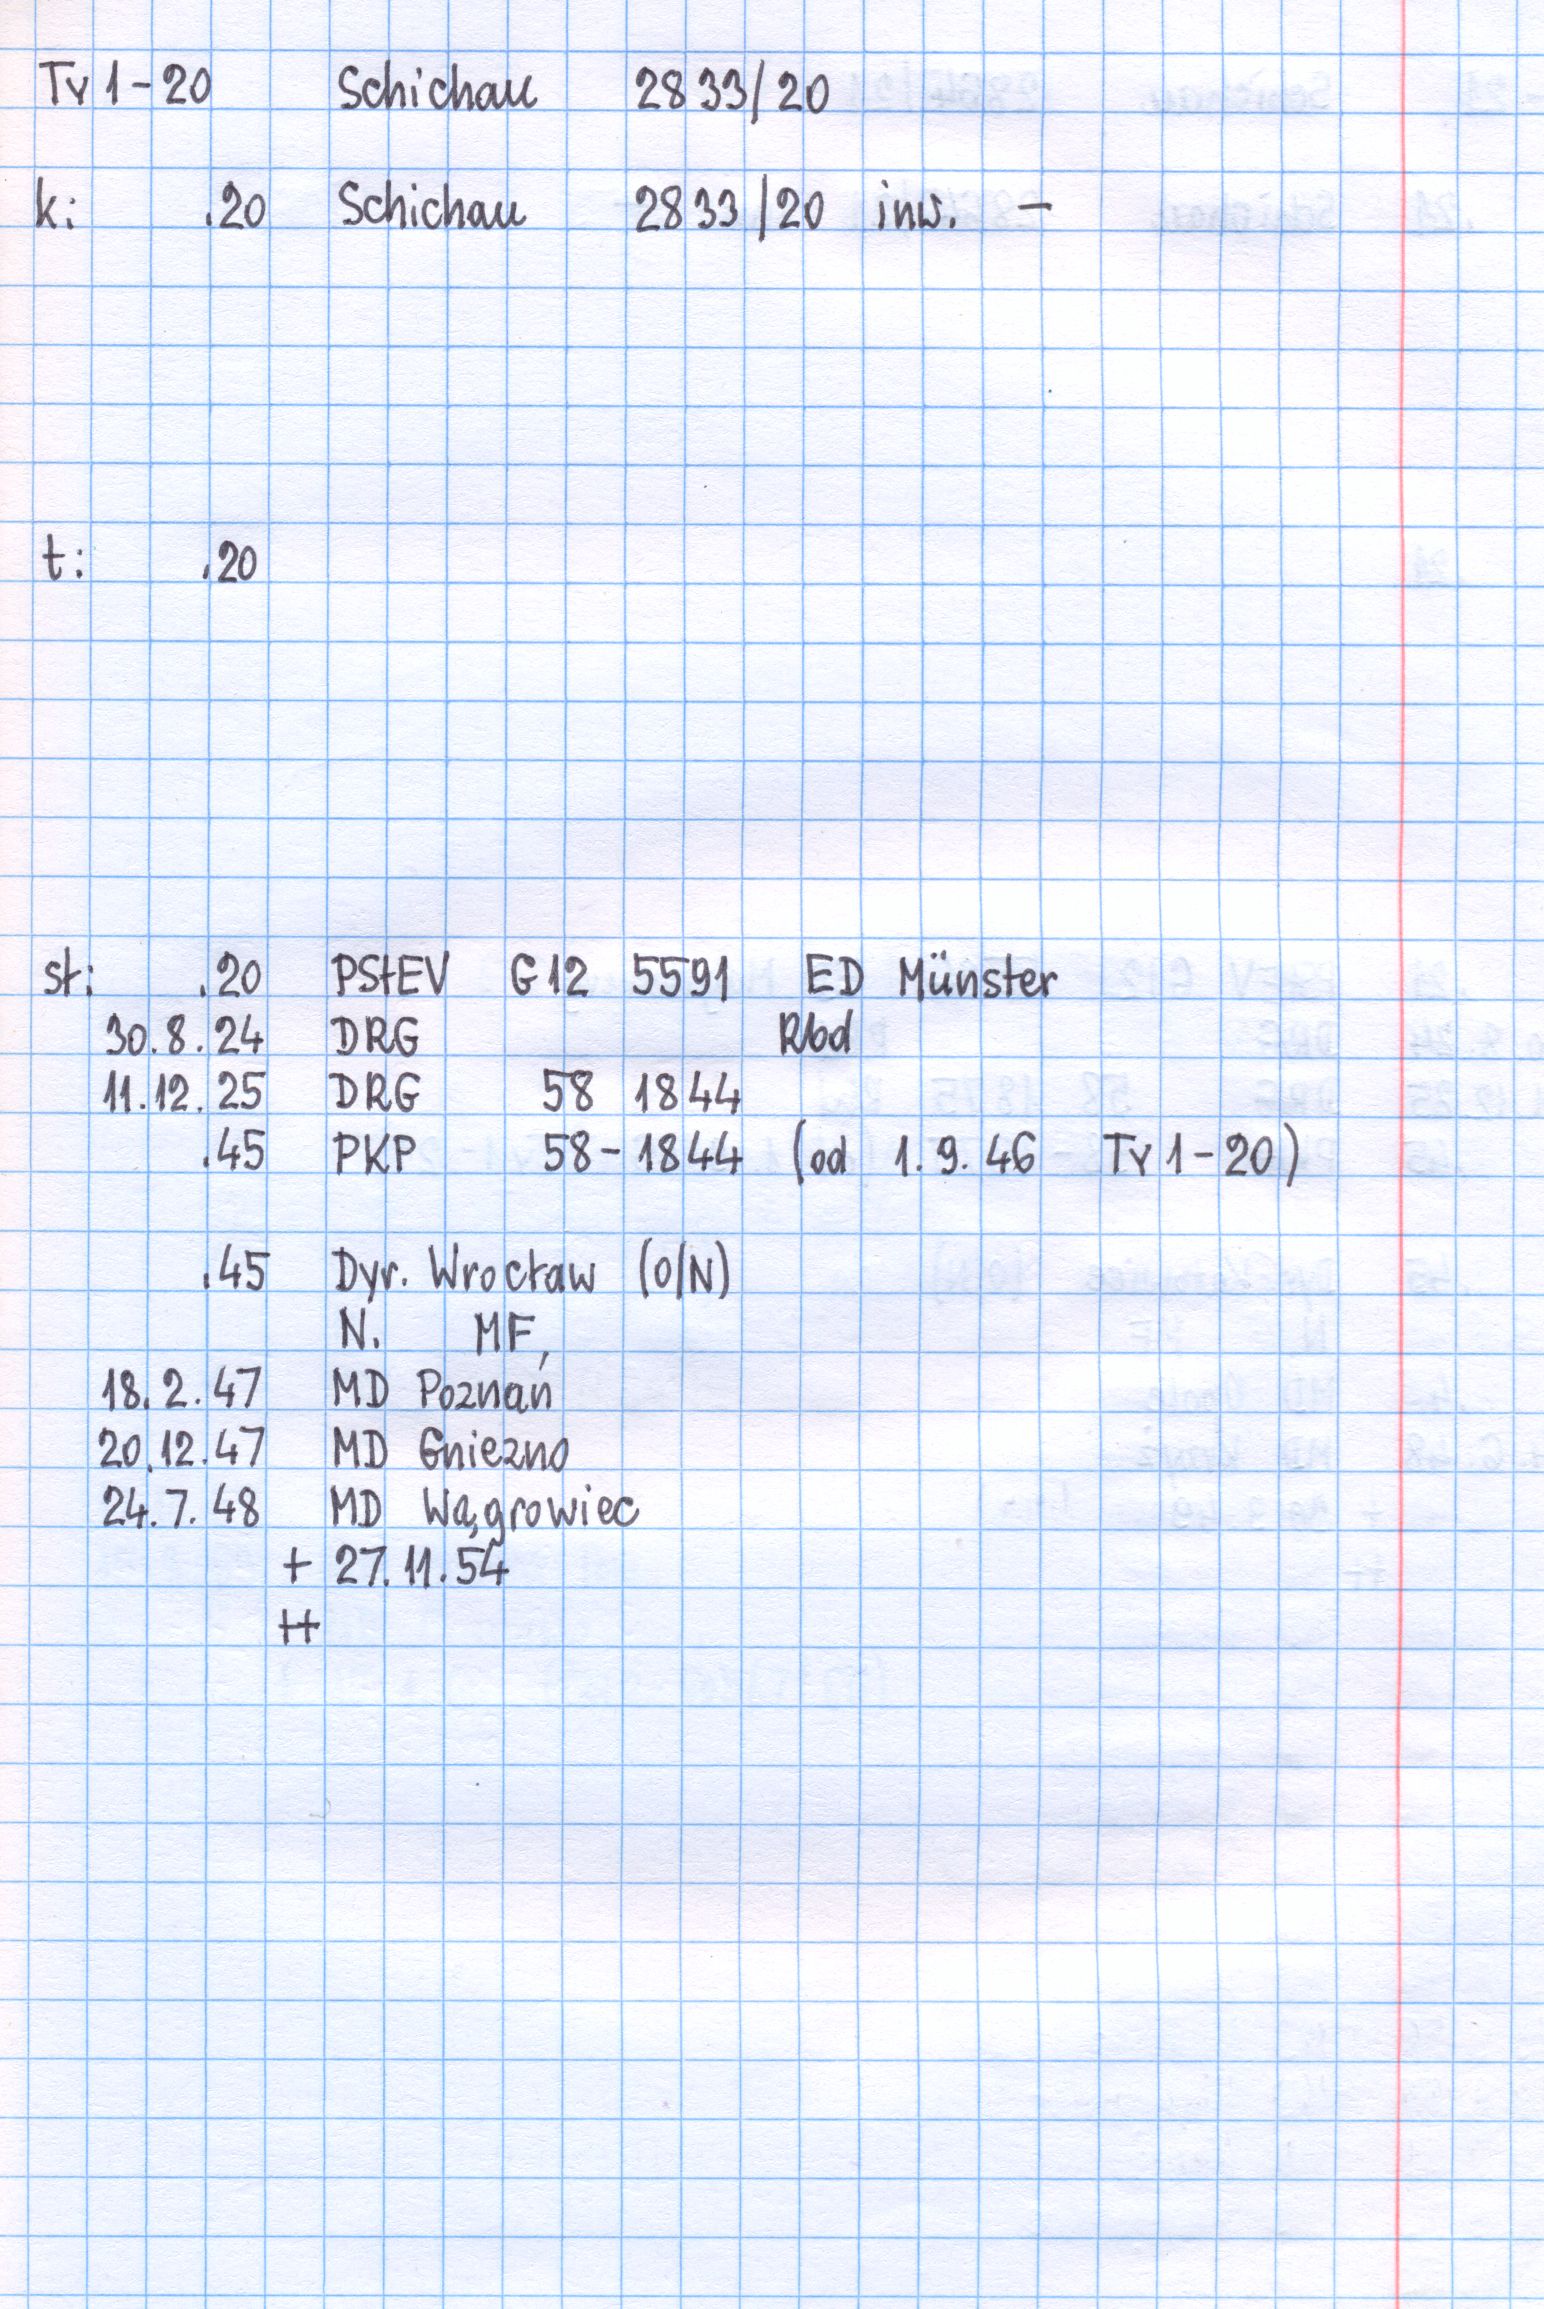 Ty1-20 Schichau 2833/20
k: .20 Schichau 2833/20 inw. -
t: .20
st: .20 PStEV G12 5591 ED Münster
30.8.24 DRG Rbd
11.12.25 DRG 58 1844
.45 PKP 58-1844 (od 1.9.46 Ty1-20)
.45 Dyr. Wrocław (O/N)
N. MF,
18.2.47 MD Poznań
20.12.47 MD Gniezno
24.7.48 MD Wągrowiec
+ 27.11.54
++